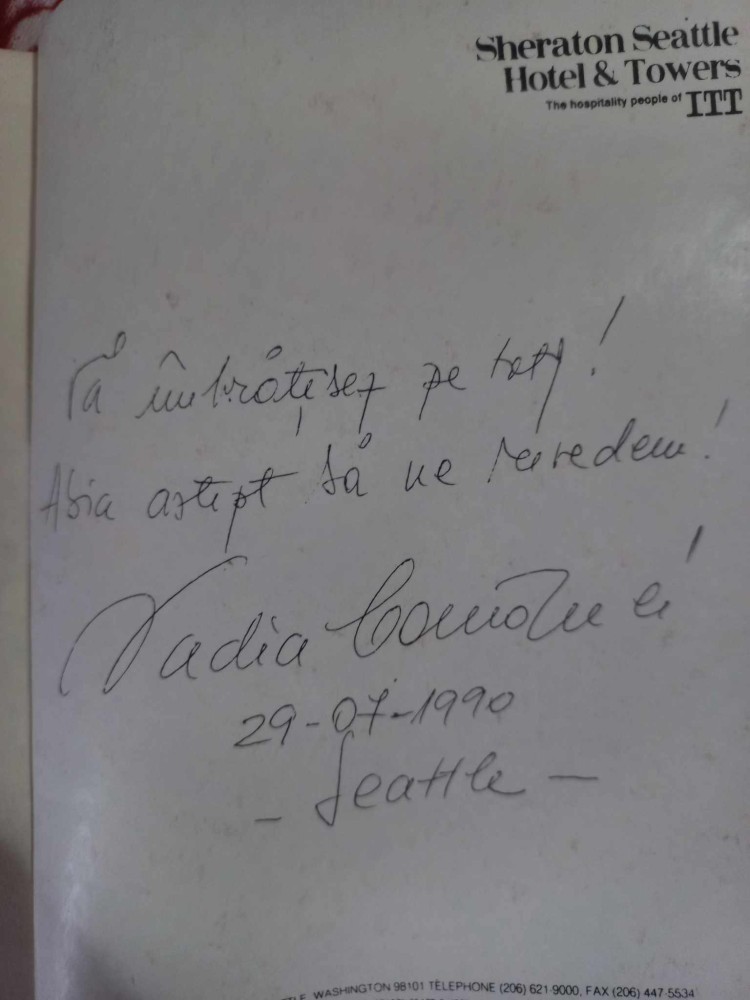 Sheraton Seattle
Hotel & Towers
The hospitality people of ITT
Vă îmbrățișez pe toți!
Abia aștept să ne revedem!
Nadia Comăneci
29-07-1990
- Seattle -
WASHINGTON 98101 TELEPHONE (206) 621-9000, FAX (206) 447-5534